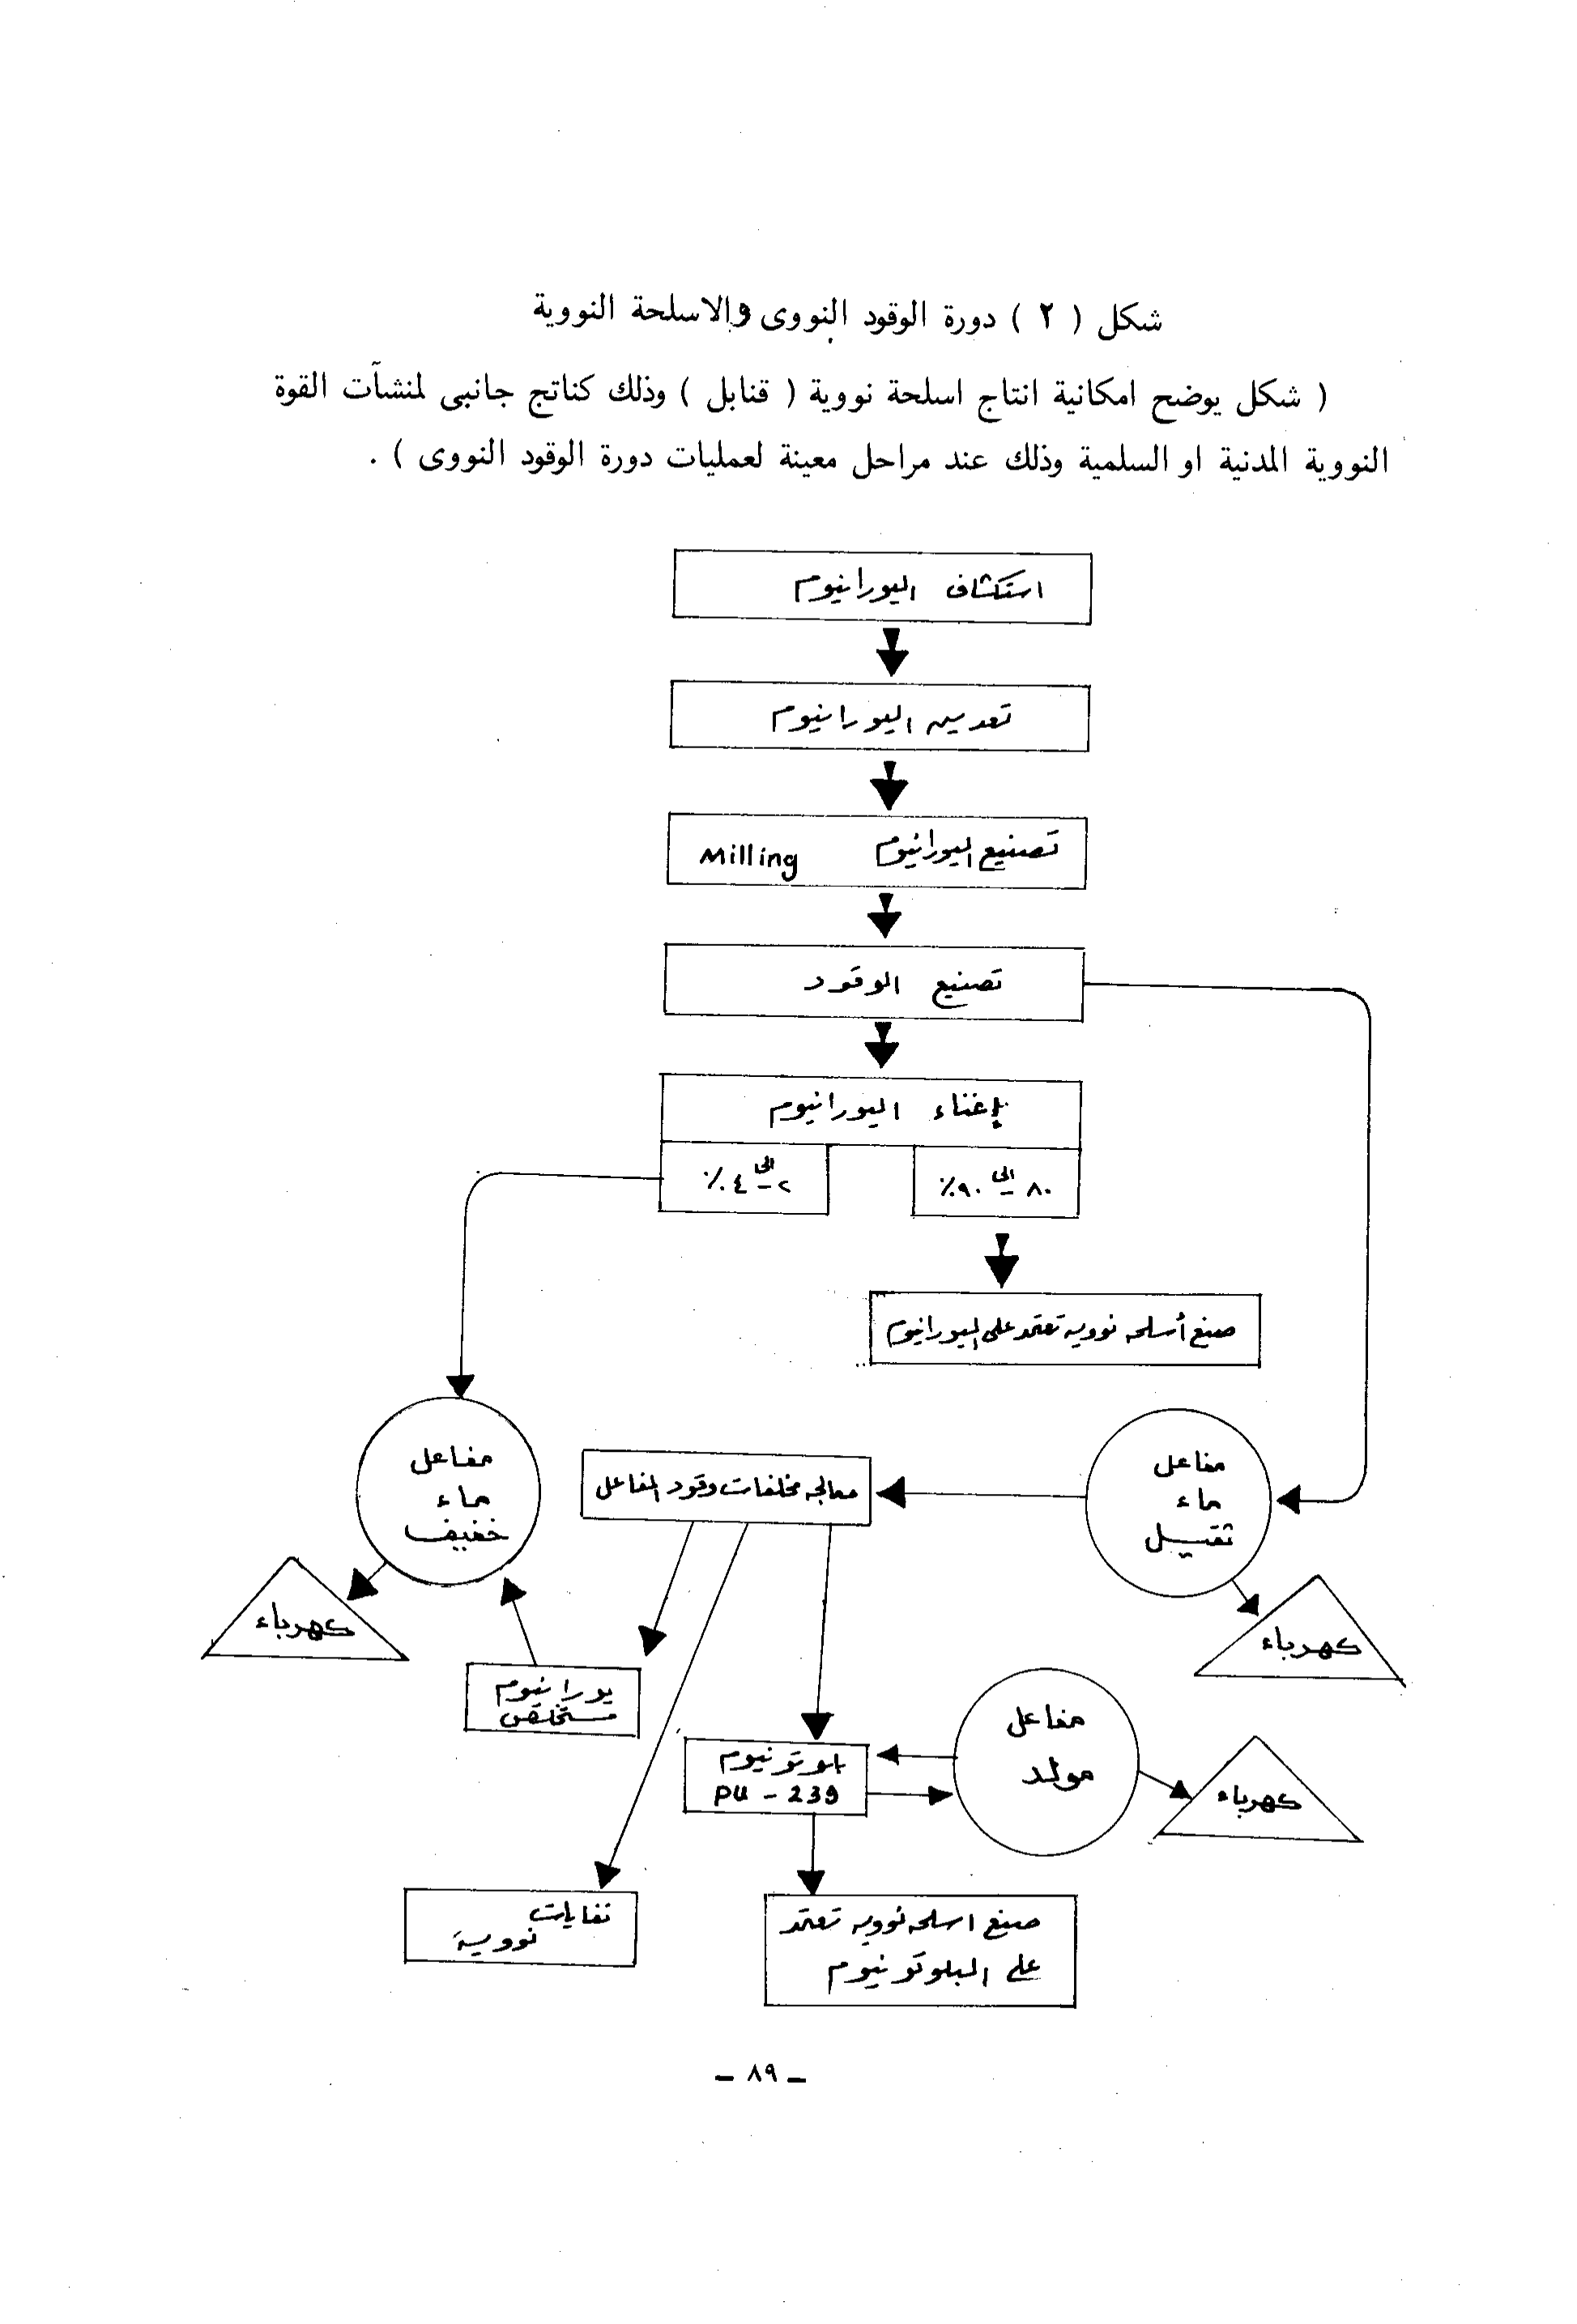 شكل ( ٢ ) دورة الوقود النووى والاسلحة النووية
( شكل يوضح امكانية انتاج اسلحة نووية ( قنابل ) وذلك كناتج جانبى لمنشآت القوة
النووية المدنية او السلمية وذلك عند مراحل معينة لعمليات دورة الوقود النووى ) .
استكشاف اليورانيوم
تعدين اليورانيوم
تصنيع اليورانيوم Milling
تصنيع الوقود
إغناء اليورانيوم
٨٠ الى ٩٠٪
٢ الى ٤٪
صنع أسلحه نوويه تعتمد على اليورانيوم
مفاعل
ماء
ثقيل
معالجه مخلفات وقود المفاعل
مفاعل
ماء
خفيف
كهرباء
كهرباء
يورانيوم
مستخلص
مفاعل
مولد
بلوتونيوم
PU - 239
كهرباء
نفايات
نووية
صنع اسلحه نوويه تعتمد
على البلوتونيوم
– ٨٩ –